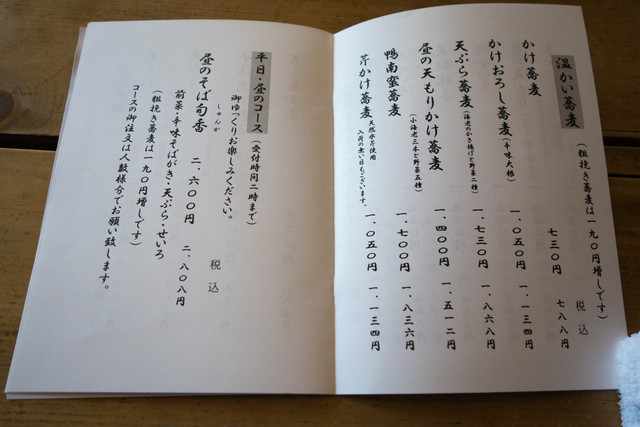 温かい蕎麦
（粗挽き蕎麦は一九〇円増しです）
税込
かけ蕎麦 七三〇円 七八八円
かけおろし蕎麦（辛味大根） 一、〇五〇円 一、一三四円
天ぷら蕎麦（海老のかき揚げと野菜二種） 一、七三〇円 一、八六八円
昼の天もりかけ蕎麦 一、四〇〇円 一、五一二円
（小海老三本と野菜五種）
鴨南蛮蕎麦 一、七〇〇円 一、八三六円
芹かけ蕎麦 一、〇五〇円 一、一三四円
天然水芹使用
入荷の無い日もございます。
平日・昼のコース（受付時間二時まで）
御ゆっくりお楽しみください。
税込
しゅんか
昼のそば旬香 二、六〇〇円 二、八〇八円
前菜・辛味そばがき・天ぷら・せいろ
（粗挽き蕎麦は一九〇円増しです）
コースの御注文は人数様分でお願い致します。